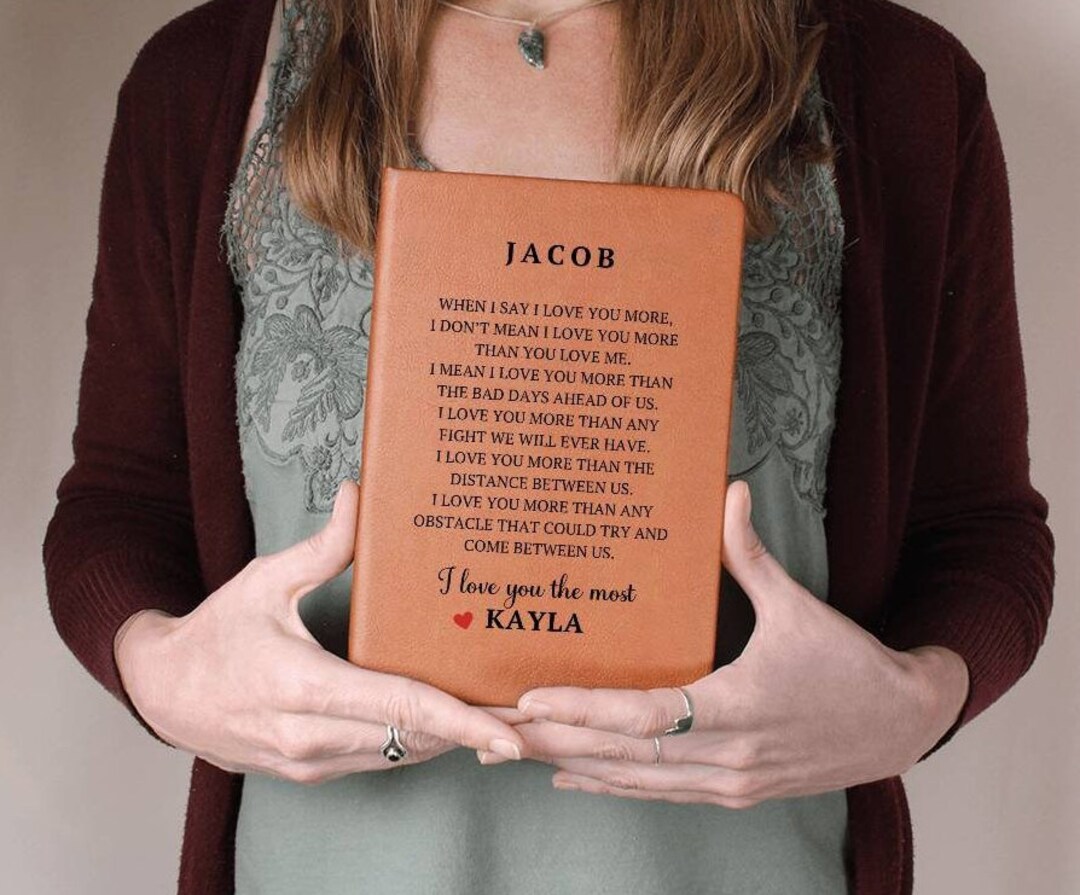 JACOB
WHEN I SAY I LOVE YOU MORE,
I DON'T MEAN I LOVE YOU MORE
THAN YOU LOVE ME.
I MEAN I LOVE YOU MORE THAN
THE BAD DAYS AHEAD OF US.
I LOVE YOU MORE THAN ANY
FIGHT WE WILL EVER HAVE.
I LOVE YOU MORE THAN THE
DISTANCE BETWEEN US.
I LOVE YOU MORE THAN ANY
OBSTACLE THAT COULD TRY AND
COME BETWEEN US.
I love you the most
KAYLA